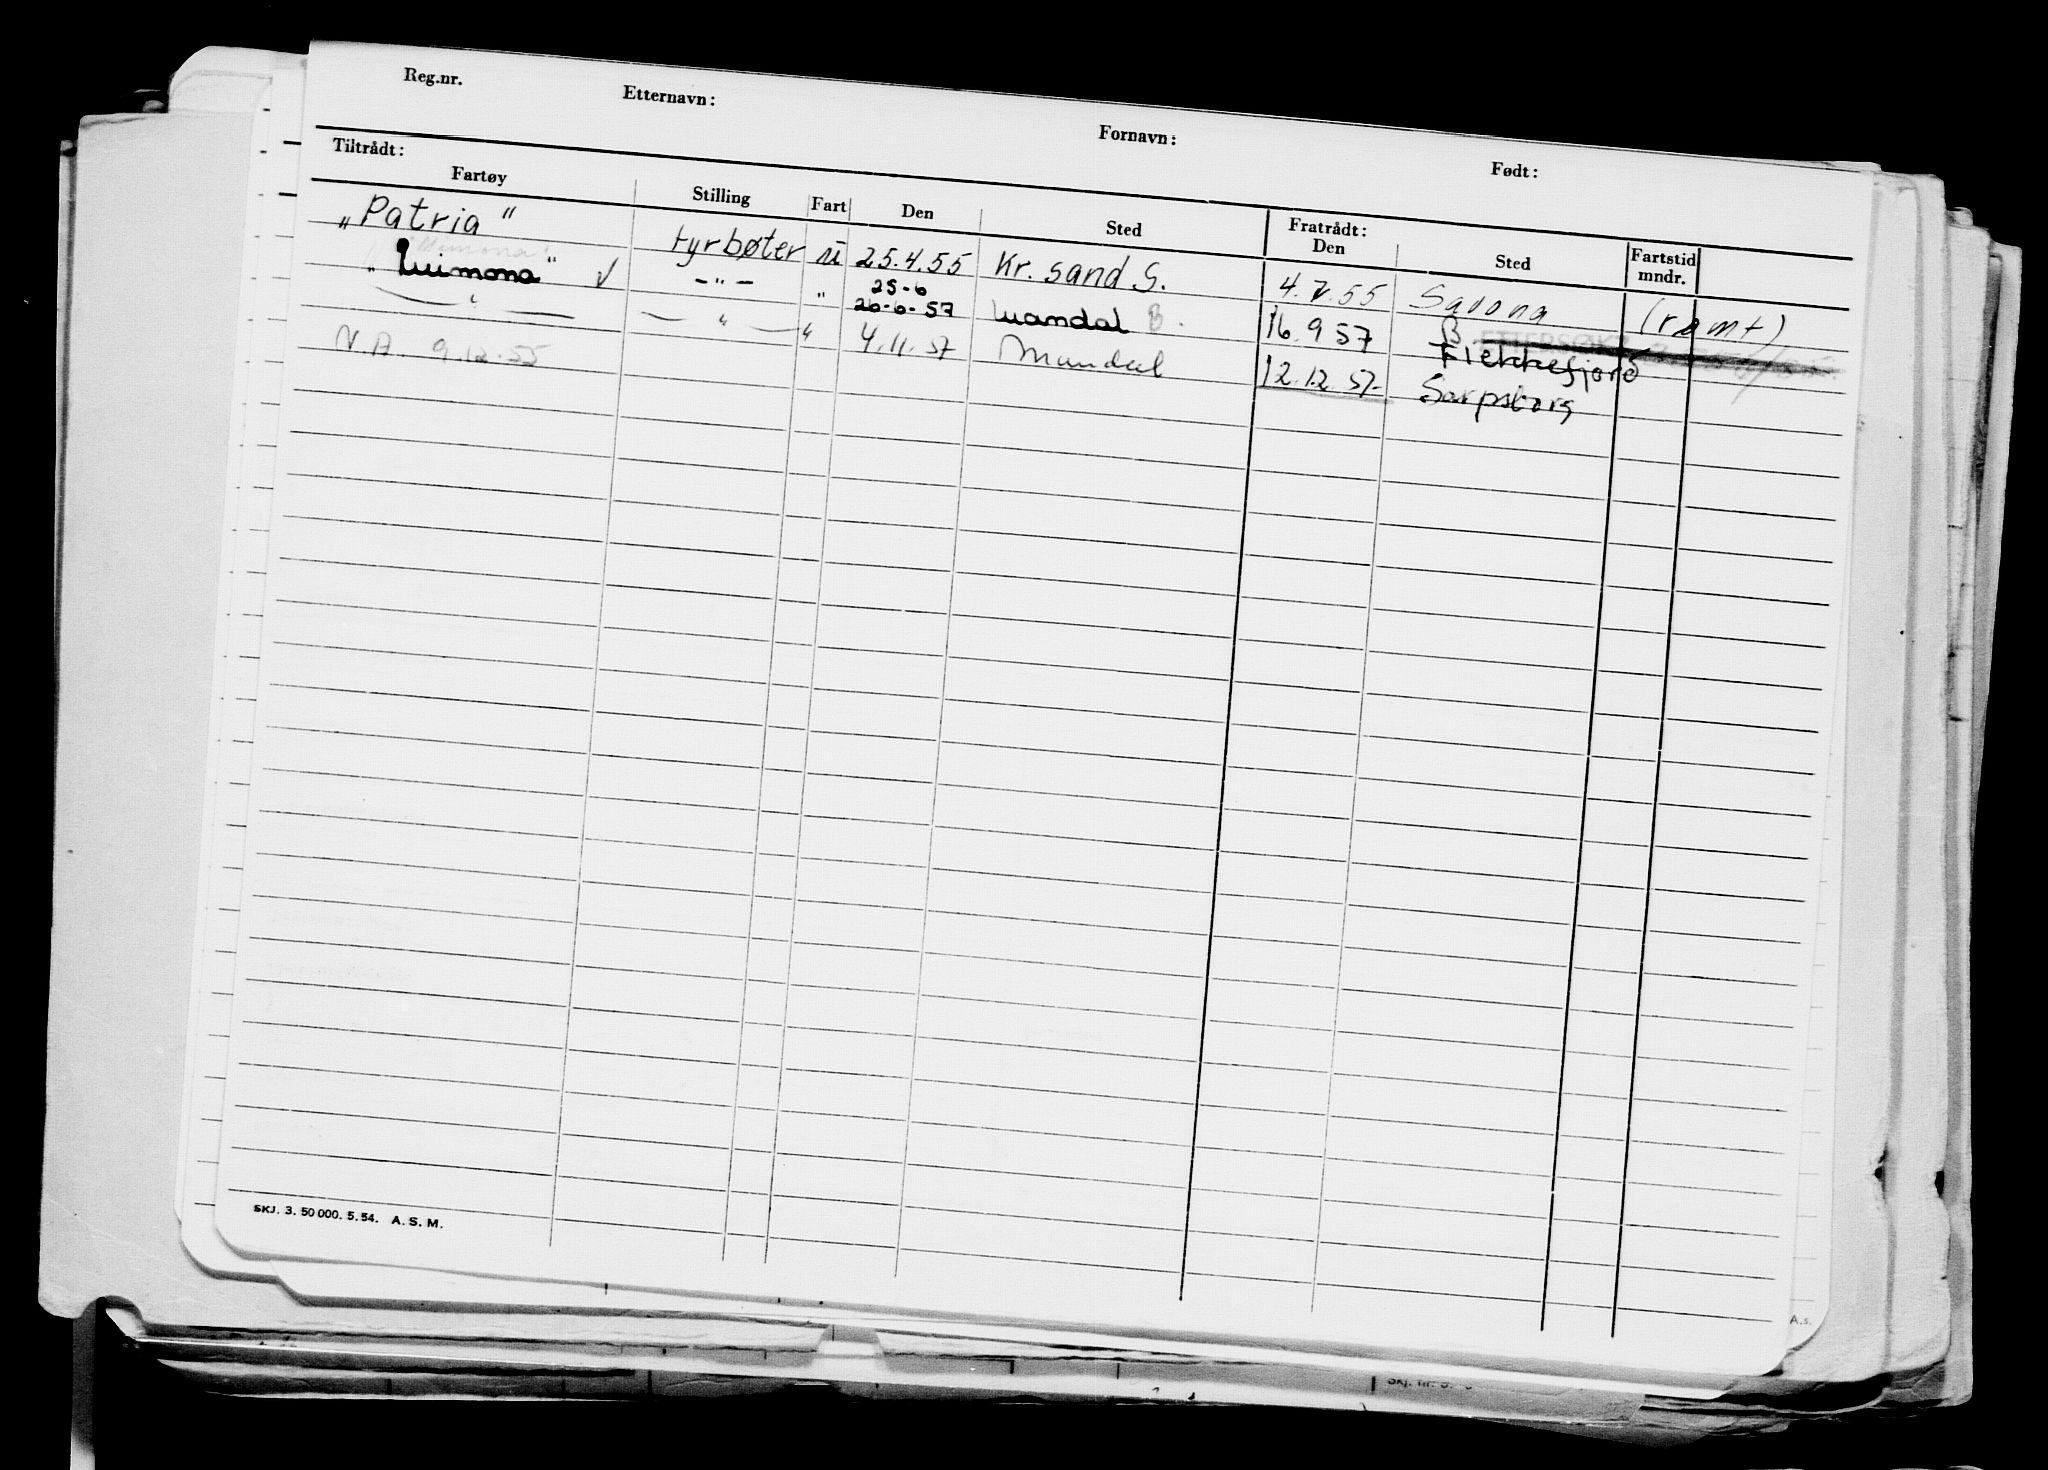 Reg.nr. Etternavn: Fornavn: Født:
Tiltrådt: Fratrådt:
Fartøy Stilling Fart Den Sted Den Sted Fartstid mndr.
„Patria" fyrbøter U 25.4.55 Kr. sand S. 4.7.55 Savona (rømt)
25-6
„ mona" V -"- " 26-6-57 Mandal B. 16.9 57 B. Flekkefjord
" " " 4.11.57 Mandal 12.12.57- Sarpsborg
N.A. 9.12.55
SKJ. 3. 50 000. 5. 54. A. S. M.
A.s.